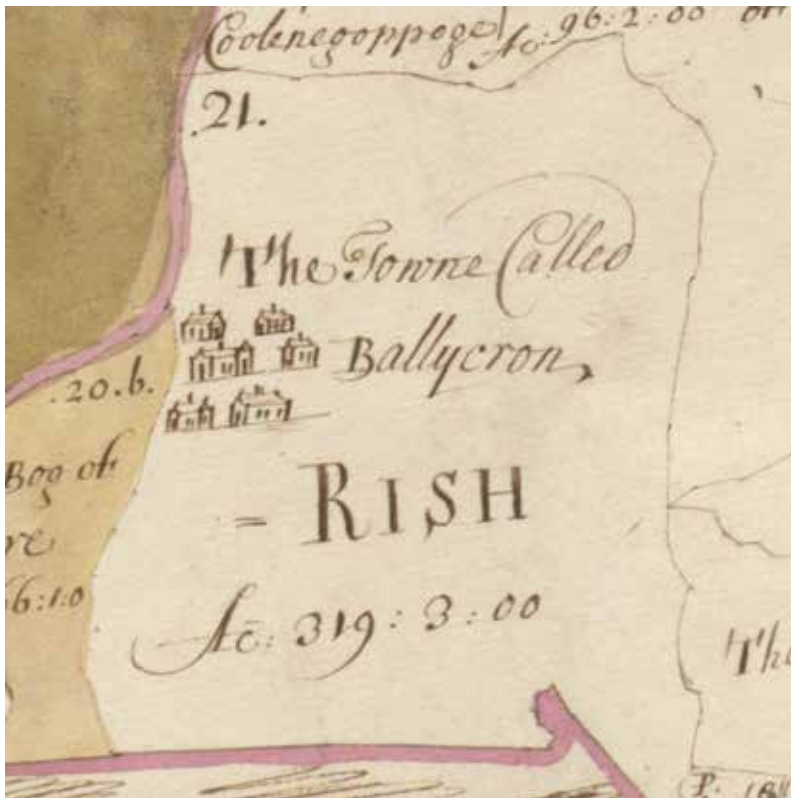 Coolenegoppoge Ac: 96:2:00
.21.
The Towne Called
Ballycron,
.20.b.
Bog of
= RISH
re
6:1:0
Ac: 319:3:00
The
P.